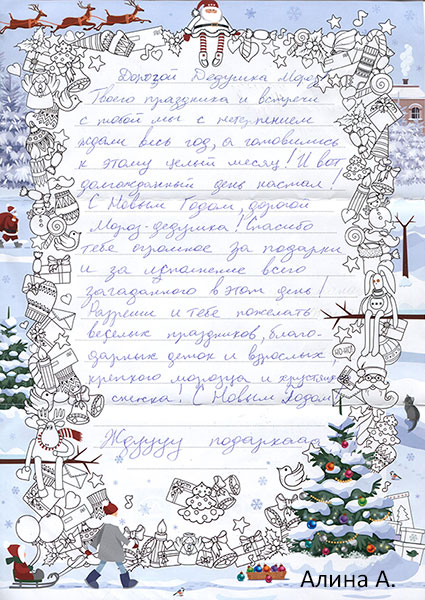 Дорогой Дедушка Мороз
Твоего праздника и встречи
с тобой мы с нетерпением
ждали весь год, а готовились
к этому целый месяц! И вот
долгожданный день настал!
С Новым Годом, дорогой
Мороз-дедушка! Спасибо
тебе огромное за подарки
и за исполнение всего
загаданного в этом день!
Разреши и тебе пожелать
веселых праздников, благо-
дарных деток и взрослых,
крепкого морозца и хрустящ
снежка! С Новым Годом!
Ждуууу подаркаааа
HO-HO
Алина А.